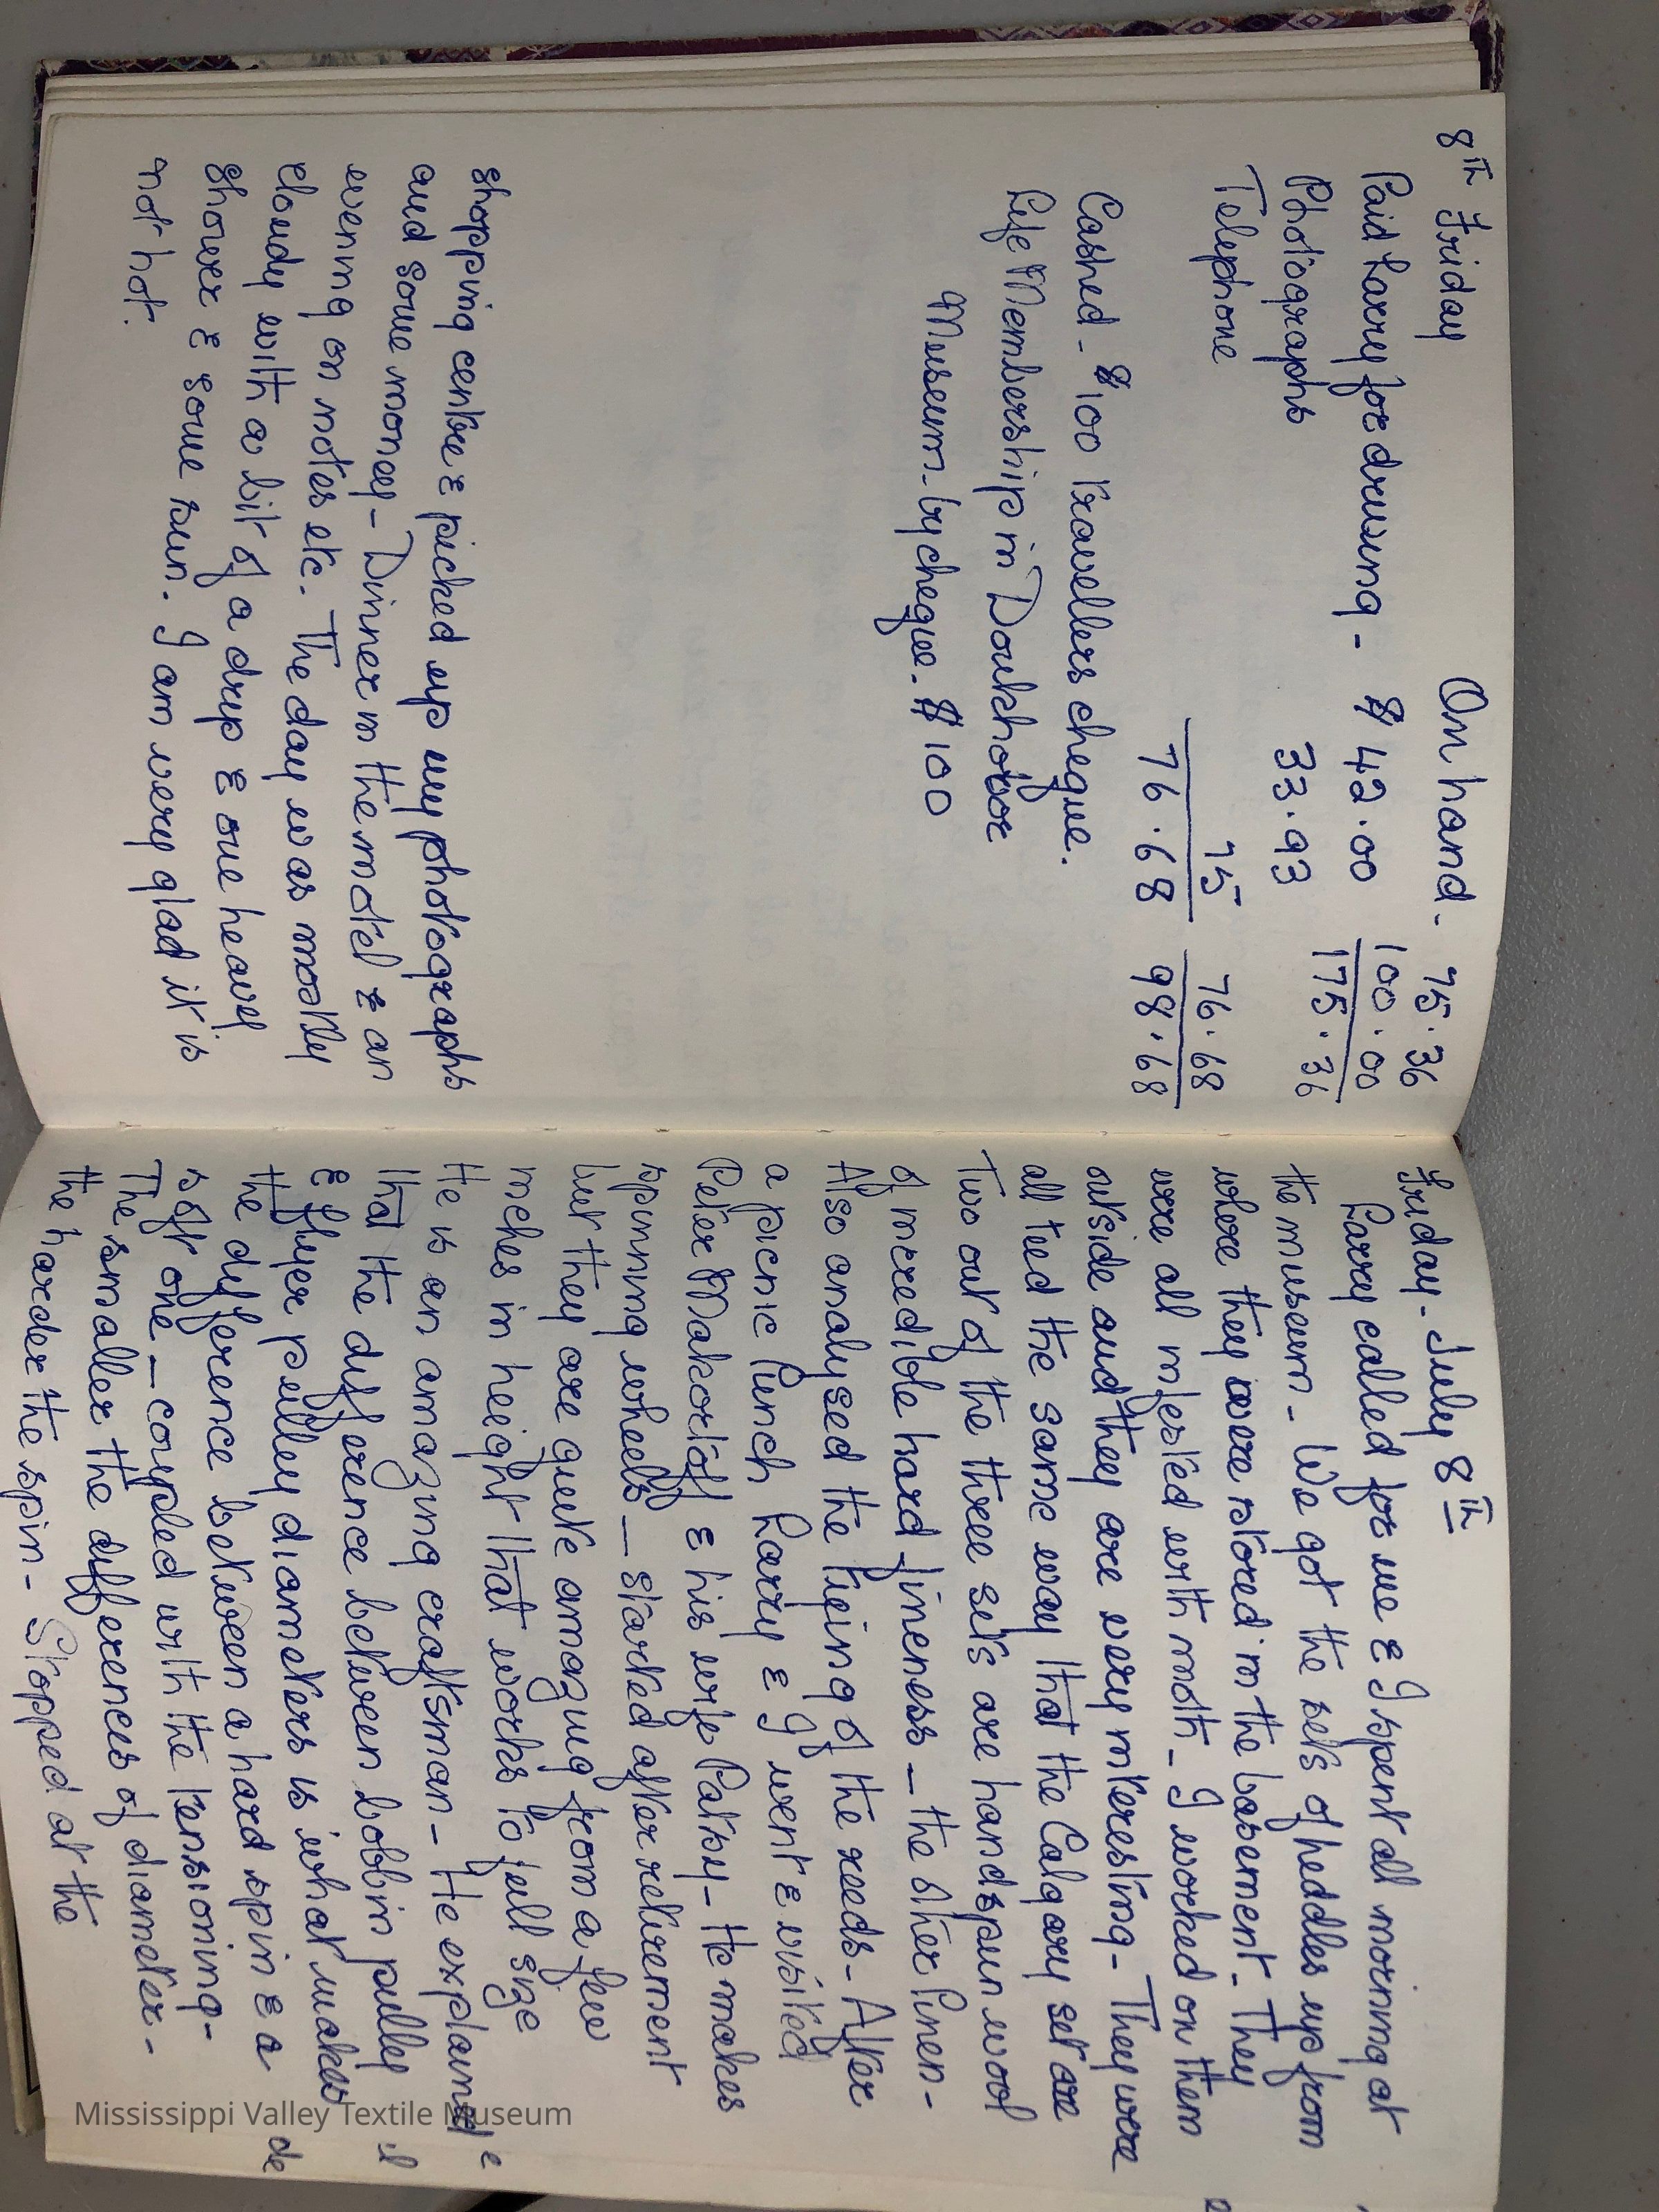 8th Friday On hand - 75.36
100.00
Paid Larry for drawing - $42.00 175.36
Photographs 33.93
Telephone 75 76.68
76.68 98.68
Cashed - $100 travellers cheque.
Life Membership in Doukhobor
Museum - by cheque - $100
shopping centre & picked up my photographs
and some money - Dinner in the motel & an
evening on notes etc. The day was mostly
cloudy with a bit of a drip & one heavy
shower & some sun. I am very glad it is
not hot.
Friday - July 8th
Larry called for me & I spent all morning at
the museum - We got the sets of heddles up from
where they were stored in the basement - They
were all infested with moth - I worked on them
outside and they are very interesting - They were
all tied the same way that the Calgary set are
Two out of the three sets are handspun wool
of incredible hard fineness - the other linen -
Also analysed the tieing of the reeds - After
a picnic lunch Larry & I went & visited
Peter Makortoff & his wife Patsy - He makes
spinning wheels - started after retirement
but they are quite amazing from a few
inches in height that works to full size
He is an amazing craftsman - He explained
that the difference between bobbin pulley
& flyer pulley diameters is what makes
the difference between a hard spin & a
soft one - coupled with the tensioning -
The smaller the differences of diameter -
the harder the spin - Stopped at the
Mississippi Valley Textile Museum